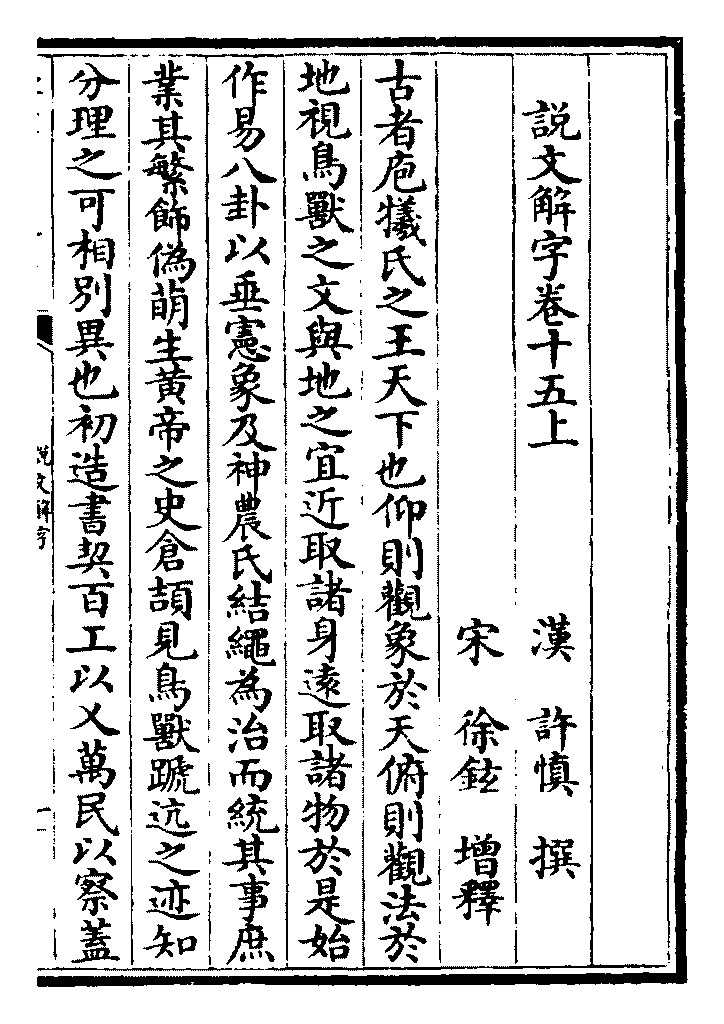 說文解字卷十五上
漢 許慎 撰
宋 徐鉉 增釋
古者庖犧氏之王天下也仰則觀象於天俯則觀法於
地視鳥獸之文與地之宜近取諸身遠取諸物於是始
作易八卦以垂憲象及神農氏結繩為治而統其事庶
業其繁飾偽萌生黃帝之史倉頡見鳥獸蹏迒之迹知
分理之可相別異也初造書契百工以乂萬民以察蓋
說文解字